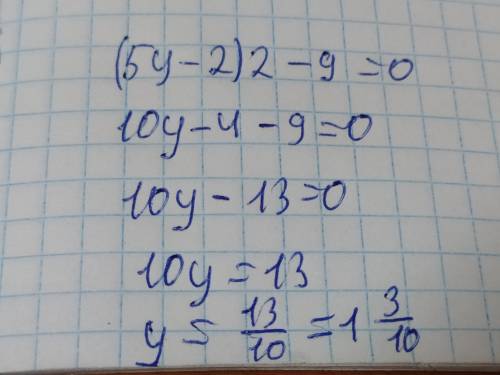 (5y-2)2-9=0
10y-4-9=0
10y-13=0
10y=13
y=13/10=1 3/10